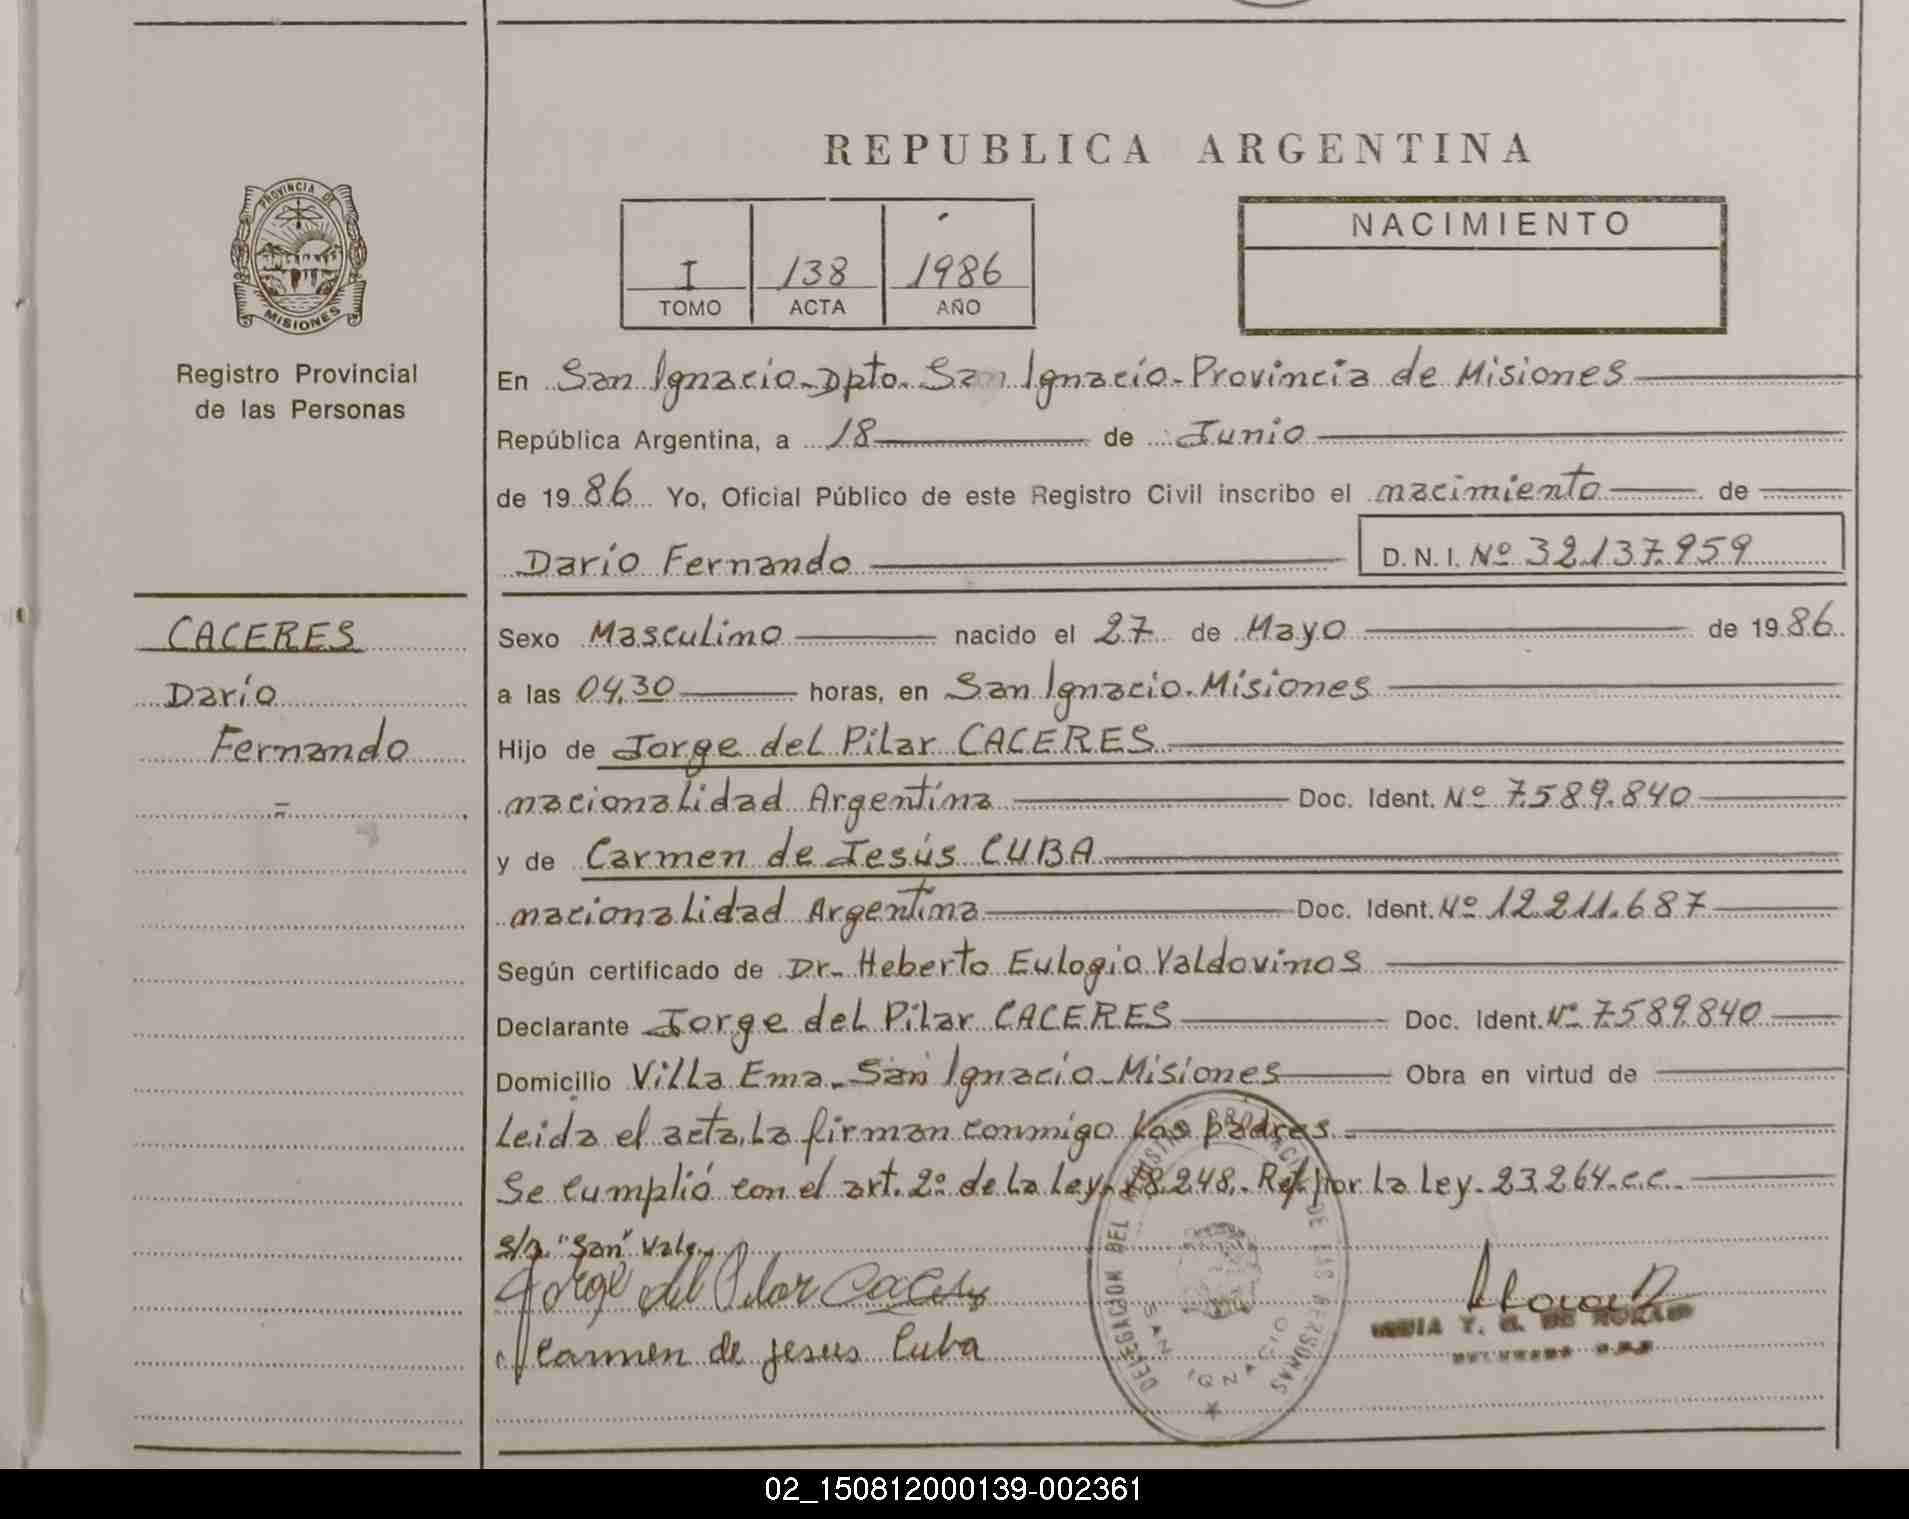 REPUBLICA ARGENTINA
PROVINCIA DE
MISIONES
Registro Provincial
de las Personas
I 138 1986
TOMO ACTA AÑO
NACIMIENTO
En San Ignacio-Dpto. San Ignacio-Provincia de Misiones
República Argentina, a 18 de Junio
de 1986 Yo, Oficial Público de este Registro Civil inscribo el nacimiento de
Darío Fernando D.N.I. Nº 32.137.959
CACERES
Darío
Fernando
Sexo Masculino nacido el 27 de Mayo de 1986
a las 04,30 horas, en San Ignacio. Misiones
Hijo de Jorge del Pilar CACERES
nacionalidad Argentina Doc. Ident. Nº 7.589.840
y de Carmen de Jesús CUBA
nacionalidad Argentina Doc. Ident. Nº 12.211.687
Según certificado de Dr. Heberto Eulogio Valdovinos
Declarante Jorge del Pilar CACERES Doc. Ident. Nº 7.589.840
Domicilio Villa Ema. San Ignacio-Misiones Obra en virtud de
Leída el acta, la firman conmigo los padres
Se cumplió con el art. 2º de la Ley. 18.248. Ref. por la Ley. 23.264. c.c.
s/r. "San" Vale.
Jorge del Pilar Caceres
Carmen de jesus Cuba
DELEGACION DEL REGISTRO PROVINCIAL DE LAS PERSONAS
SAN IGNACIO
02_150812000139-002361